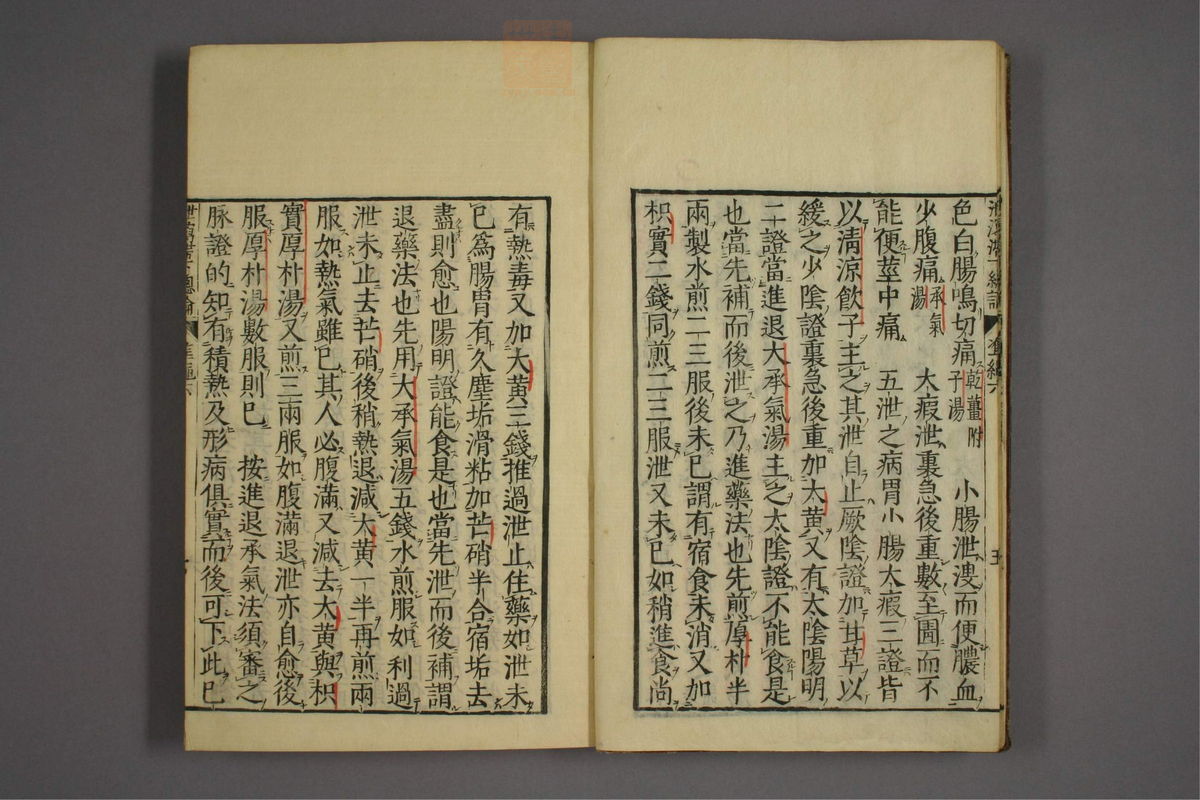 色白腸鳴切痛乾薑附子湯 小腸泄溲而便膿血
少腹痛承氣湯 大瘕泄裏急後重數至圊而不
能便莖中痛 五泄之病胃小腸大瘕三證皆
以清涼飲子主之其泄自止厥陰證加甘草以
緩之少陰證裏急後重加大黃又有太陰陽明
二證當進退大承氣湯主之太陰證不能食是
也當先補而後泄之乃進藥法也先煎厚朴半
兩製水煎二三服後未已謂有宿食未消又加
枳實二錢同煎二三服泄又未已如稍進食尚
有熱毒又加大黃三錢推過泄止住藥如泄未
已為腸胃有久塵垢滑粘加芒硝半合宿垢去
盡則愈也陽明證能食是也當先泄而後補謂
退藥法也先用大承氣湯五錢水煎服如利過
泄未止去芒硝後稍熱退減大黃一半再煎兩
服如熱氣雖已其人必腹滿又減去大黃與枳
實厚朴湯又煎三兩服如腹滿退泄亦自愈後
服厚朴湯數服則已 按進退承氣法須審之
脉證的知有積熱及形病俱實而後可下此已